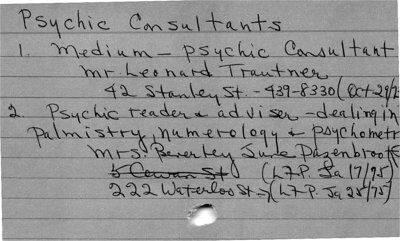 Psychic Consultants
1. Medium - psychic Consultant
Mr. Leonard Trautner
42 Stanley St. - 439-8330 (Oct 29/7
2. Psychic reader & adviser - dealing in
Palmistry, numerology & psychometr
Mrs. Beverley June Pazenbrook
5 Cowan St (LFP. Ja 17/75)
222 Waterloo St → (LFP. Ja 25/75)